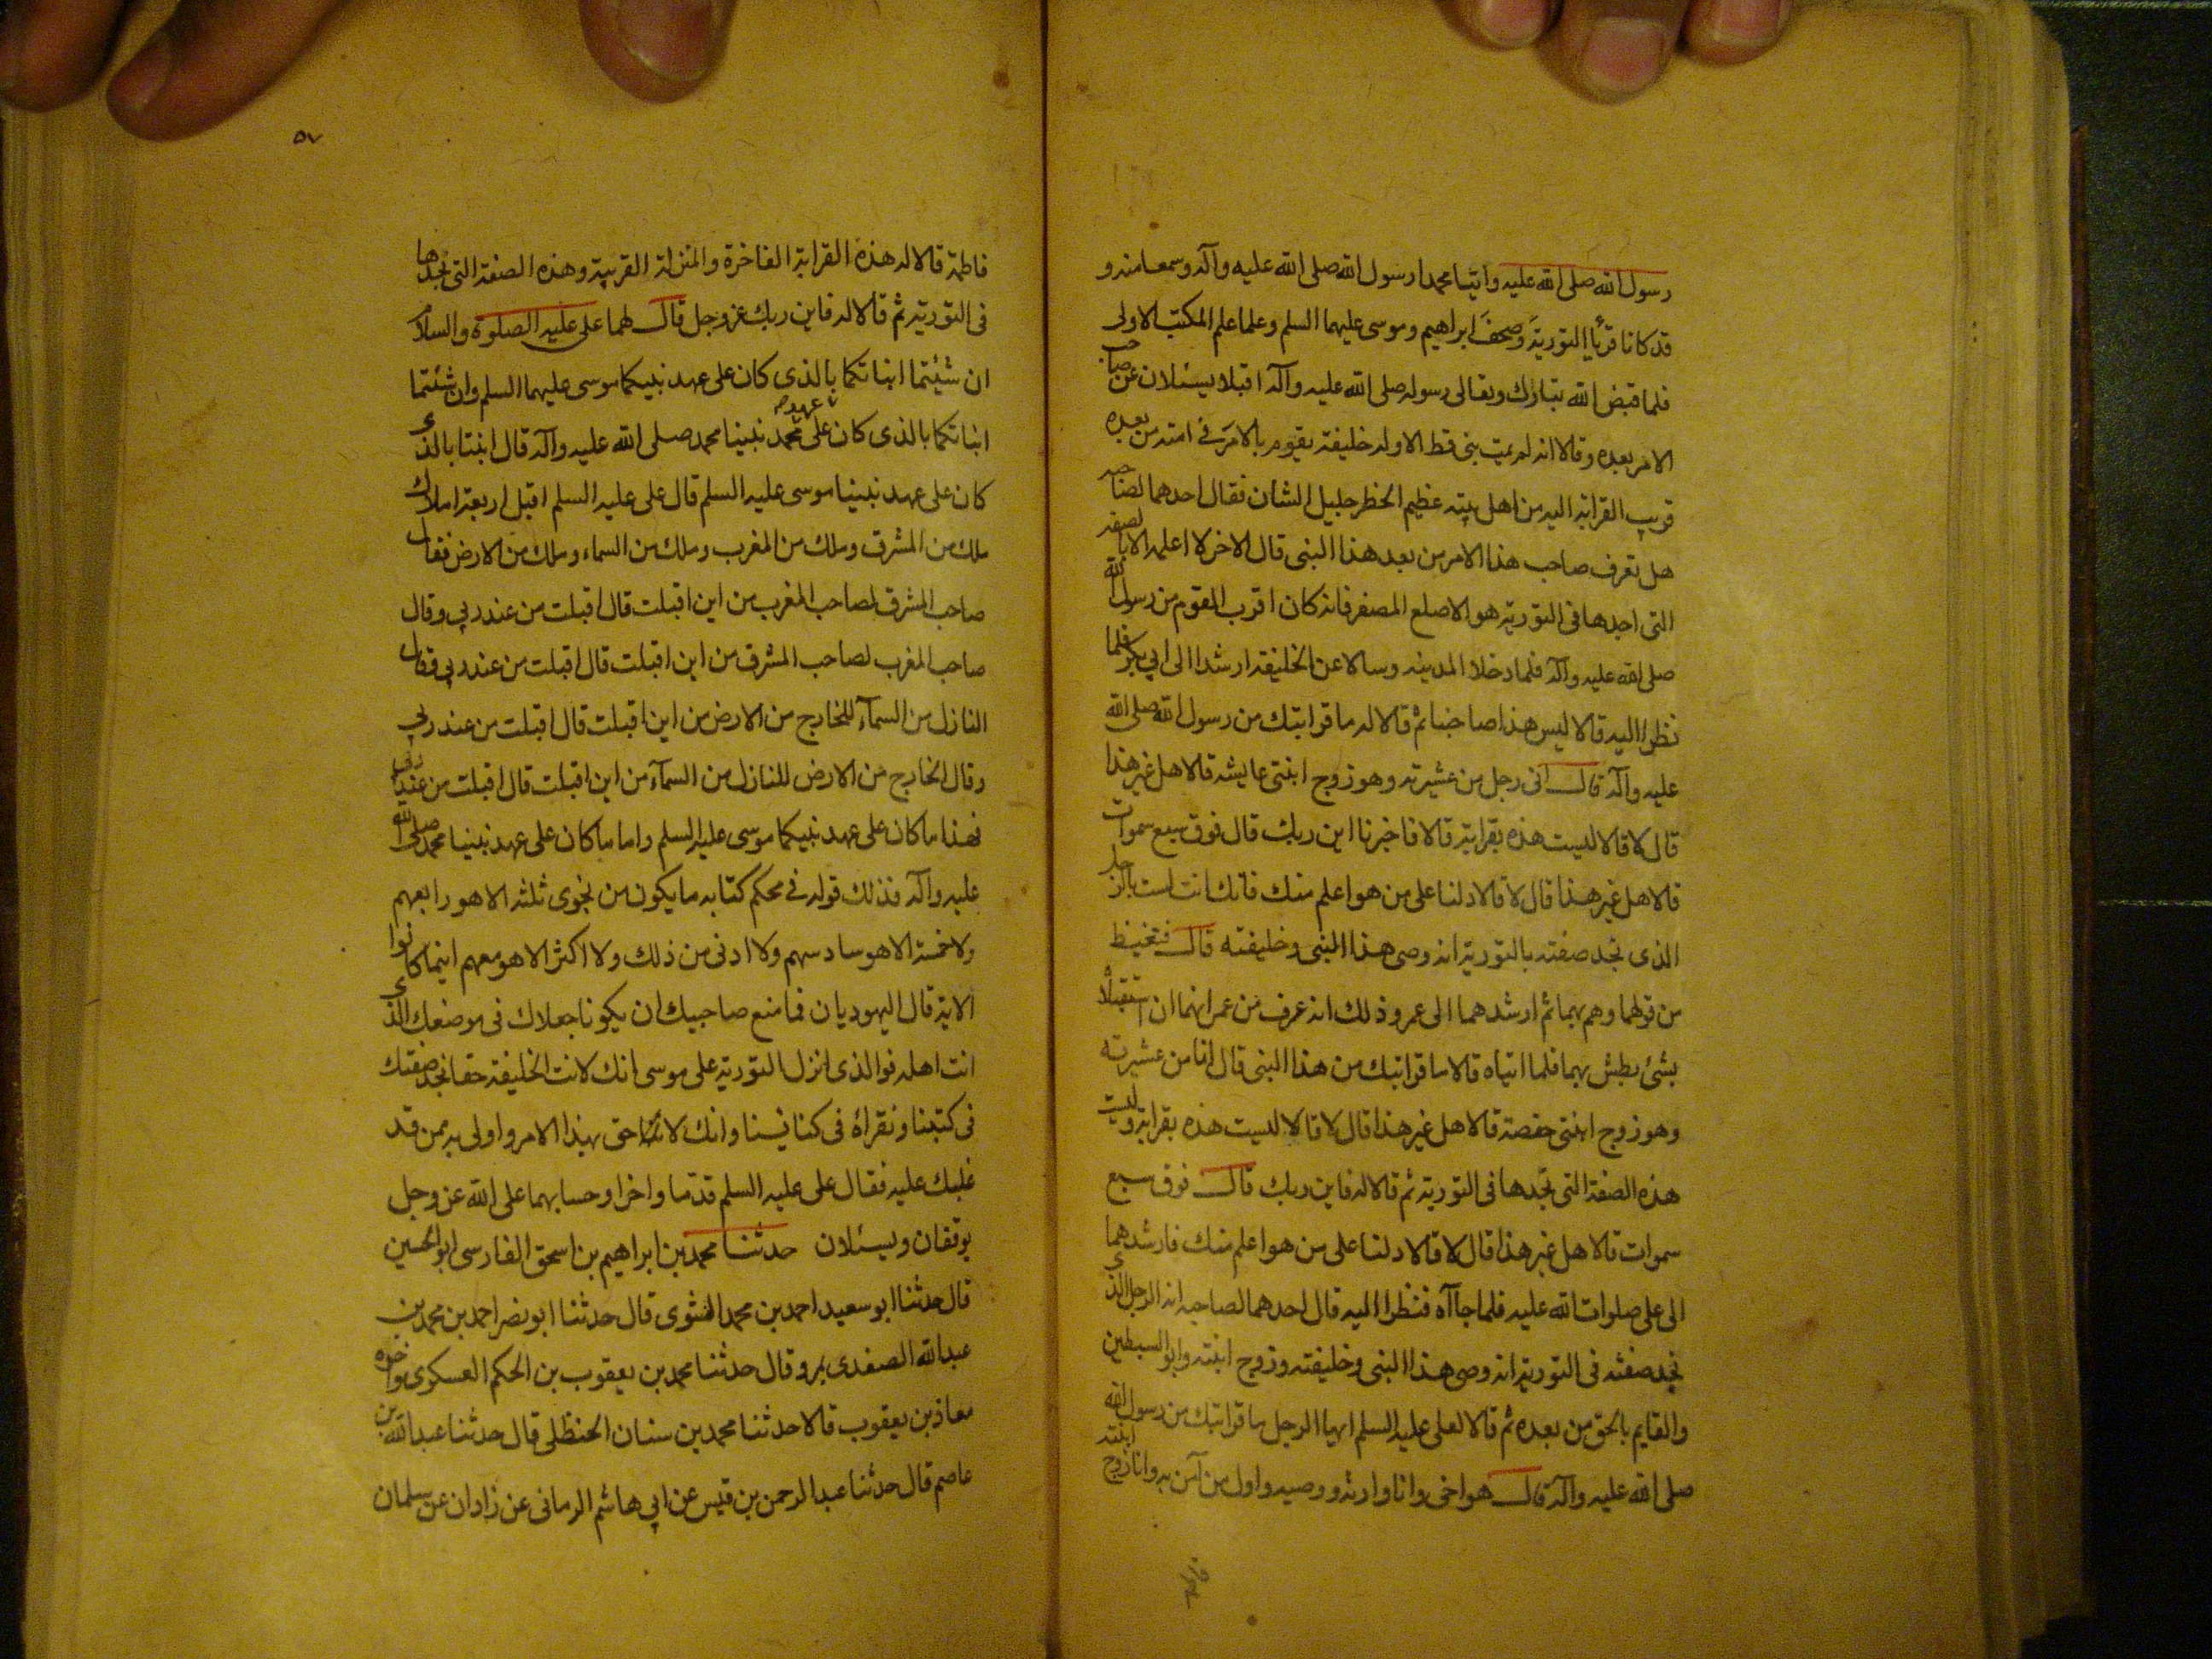 رسول الله صلى الله عليه واتيا محمدا رسول الله صلى الله عليه وآله وسمعا منه و
قد كانا قرئا التورية وصحف ابراهيم وموسى عليهما السلم وعلما علم المكتب الاولى
فلما قبض الله تبارك وتعالى رسوله صلى الله عليه وآله اقبلا يسئلان عن صاحب
الامر بعده وقالا انه لم يمت نبى قط الا وله خليفة يقوم بالامر فى امته من بعده
قريب القرابة اليه من اهل بيته عظيم الخطر جليل الشان فقال احدهما لصاحبه
هل تعرف صاحب هذا الامر من بعد هذا النبى قال الاخر لا اعلمه الا بالصفة
التى اجدها فى التورية هو الاصلع المصفر فانه كان اقرب القوم من رسول الله
صلى الله عليه وآله فلما دخلا المدينة وسالا عن الخليفة ارشدا الى ابى بكر فلما
نظرا اليه قالا ليس هذا صاحبنا ثم قالا له ما قرابتك من رسول الله صلى الله
عليه وآله قال انى رجل من عشيرته وهو زوج ابنتى عايشه قالا هل غير هذا
قال لا قالا ليست هذه بقرابة قالا فاخبرنا اين ربك قال فوق سبع سموات
قالا هل غير هذا قال لا قالا دلنا على من هو اعلم منك فانك انت لست بالرجل
الذى نجد صفته بالتورية انه وصى هذا النبى وخليفته قال فتغيظ
من قولهما وهم بهما ثم ارشدهما الى عمر وذلك انه عرف من عمر انهما ان استقبلاه
بشئ بطش بهما فلما اتياه قالا ما قرابتك من هذا النبى قال انا من عشيرته
وهو زوج ابنتى حفصة قالا هل غير هذا قال لا قالا ليست هذه بقرابة وليست
هذه الصفة التى نجدها فى التورية ثم قالا له فاين ربك قال فوق سبع
سموات قالا هل غير هذا قال لا قالا دلنا على من هو اعلم منك فارشدهما
الى على صلوات الله عليه فلما جاآه فنظرا اليه قال احدهما لصاحبه انه الرجل الذى
نجد صفته فى التورية انه وصى هذا النبى وخليفته وزوج ابنته وابو السبطين
والقايم بالحق من بعده ثم قالا لعلى عليه السلم ايها الرجل ما قرابتك من رسول الله
صلى الله عليه وآله قال هو اخى وانا وارثه ووصيه واول من آمن به وانا زوج ابنته
٥٧
فاطمة قالا له هذه القرابة الفاخرة والمنزلة القريبة وهذه الصفة التى نجدها
فى التورية ثم قالا له فاين ربك عز وجل قال لهما على عليه الصلوة والسلام
ان شئتما انباتكما بالذى كان على عهد نبيكما موسى عليهما السلم وان شئتما
انباتكما بالذى كان على عهد محمد نبينا محمد صلى الله عليه وآله قال انبئنا بالذى
كان على عهد نبينا موسى عليه السلم قال على عليه السلم اقبل اربعة املاك
ملك من المشرق وملك من المغرب وملك من السماء وملك من الارض فقال
صاحب المشرق لصاحب المغرب من اين اقبلت قال اقبلت من عند ربى وقال
صاحب المغرب لصاحب المشرق من اين اقبلت قال اقبلت من عند ربى فقال
النازل من السمآء للخارج من الارض من اين اقبلت قال اقبلت من عند ربى
وقال الخارج من الارض للنازل من السمآء من اين اقبلت قال اقبلت من عند ربى
فهذا ما كان على عهد نبيكما موسى عليه السلم واما ما كان على عهد نبينا محمد صلى الله
عليه وآله فذلك قوله فى محكم كتابه ما يكون من نجوى ثلثه الا هو رابعهم
ولا خمسة الا هو سادسهم ولا ادنى من ذلك ولا اكثر الا هو معهم اينما كانوا
الاية قال اليهوديان فما منع صاحبيك ان يكونا جعلاك فى موضعك الذى
انت اهله فوالذى انزل التورية على موسى انك لانت الخليفة حقا نجد صفتك
فى كتبنا ونقراه فى كنايسنا وانك لانت احق بهذا الامر واولى به ممن قد
غلبك عليه فقال على عليه السلم قدما واخرا وحسابهما على الله عز وجل
يوقفان ويسئلان حدثنا محمد بن ابراهيم بن اسحق الفارسى ابو الحسين
قال حدثنا ابو سعيد احمد بن محمد النسوى قال حدثنا ابو نصر احمد بن محمد بن
عبد الله الصفدى بمرو قال حدثنا محمد بن يعقوب بن الحكم العسكرى واخوه
معاذ بن يعقوب قالا حدثنا محمد بن سنان الحنظلى قال حدثنا عبد الله بن
عاصم قال حدثنا عبد الرحمن بن قيس عن ابى هاشم الرمانى عن زادان عن سلمان